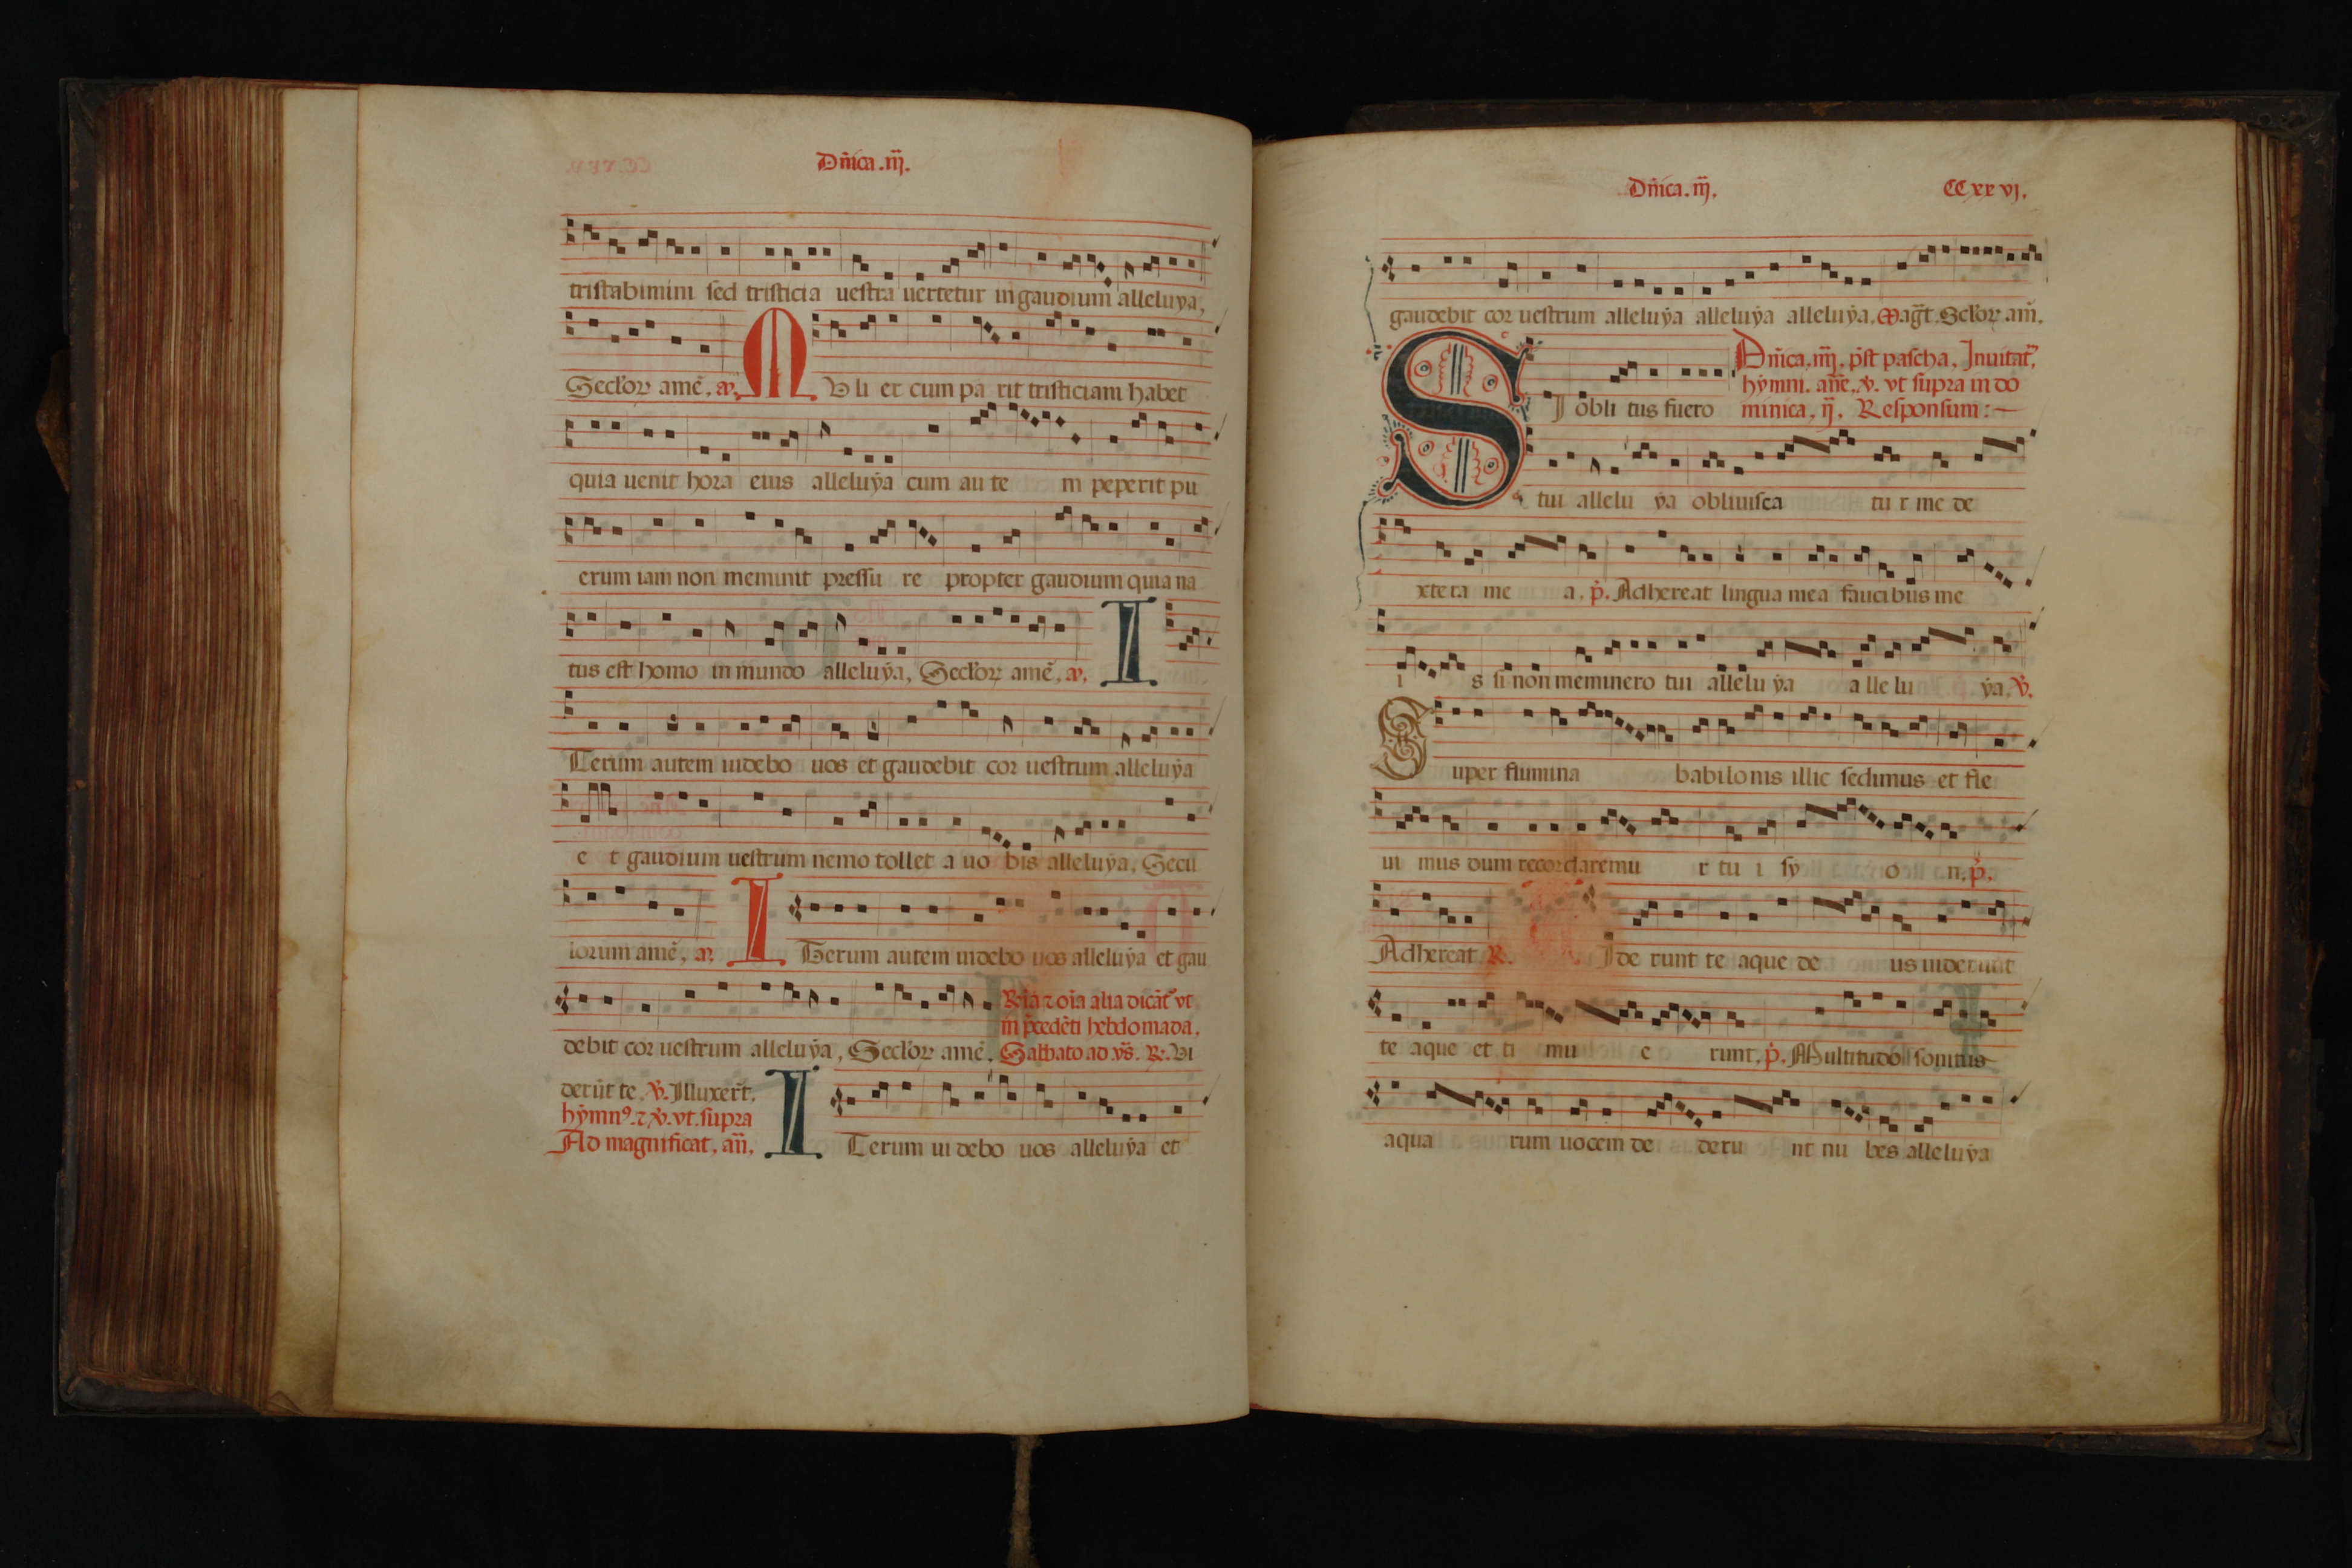 Dñica .iij.
tristabimini sed tristicia uestra uertetur in gaudium alleluẏa,
Seclor amē. M Uli er cum pa rit tristiciam habet
quia uenit hora eius alleluẏa cum au te m peperit pu
erum iam non meminit pressu re propter gaudium quia na
tus est homo in mundo alleluẏa, Seclor amē. I
Terum autem uidebo uos et gaudebit cor uestrum alleluẏa
e t gaudium uestrum nemo tollet a uo bis alleluẏa, Secu
lorum amē, I Terum autem uidebo uos alleluẏa et gau
debit cor uestrum alleluẏa, Seclor amē,
ꝛ oīa alia dicāt vt
in p̄cedēti hebdomada.
Sabbato ad vs̄. R. Ui
derūt te. v̇. Illuxer̄t.
hẏmnꝰ. ⁊ v̇. vt supra
Ad magnificat, añ,
I Terum ui debo uos alleluẏa et
Dñica .iij.
CCxxvj.
gaudebit cor uestrum alleluẏa alleluẏa alleluẏa, Mag̅t. Seclor am̄.
Dñica, iiij. p̄st pascha, Inuitat̄,
hẏmni. añe, v̇. vt supra in do
minica, ij, Responsum:
S I obli tus fuero
tui allelu ẏa obliuisca tu r me de
xtera me a, p̄. Adhereat lingua mea faucibus me
i s si non meminero tui allelu ẏa a lle lu ẏa, v̇.
S uper flumina babilonis illic sedimus et fle
ui mus dum recordaremu r tu i sy o n, p̄.
Adhereat R. Ide runt te aque de us uiderunt
te aque et ti mu e runt, p̄. Multitudo sonitus
aqua rum uocem de deru nt nu bes alleluẏa